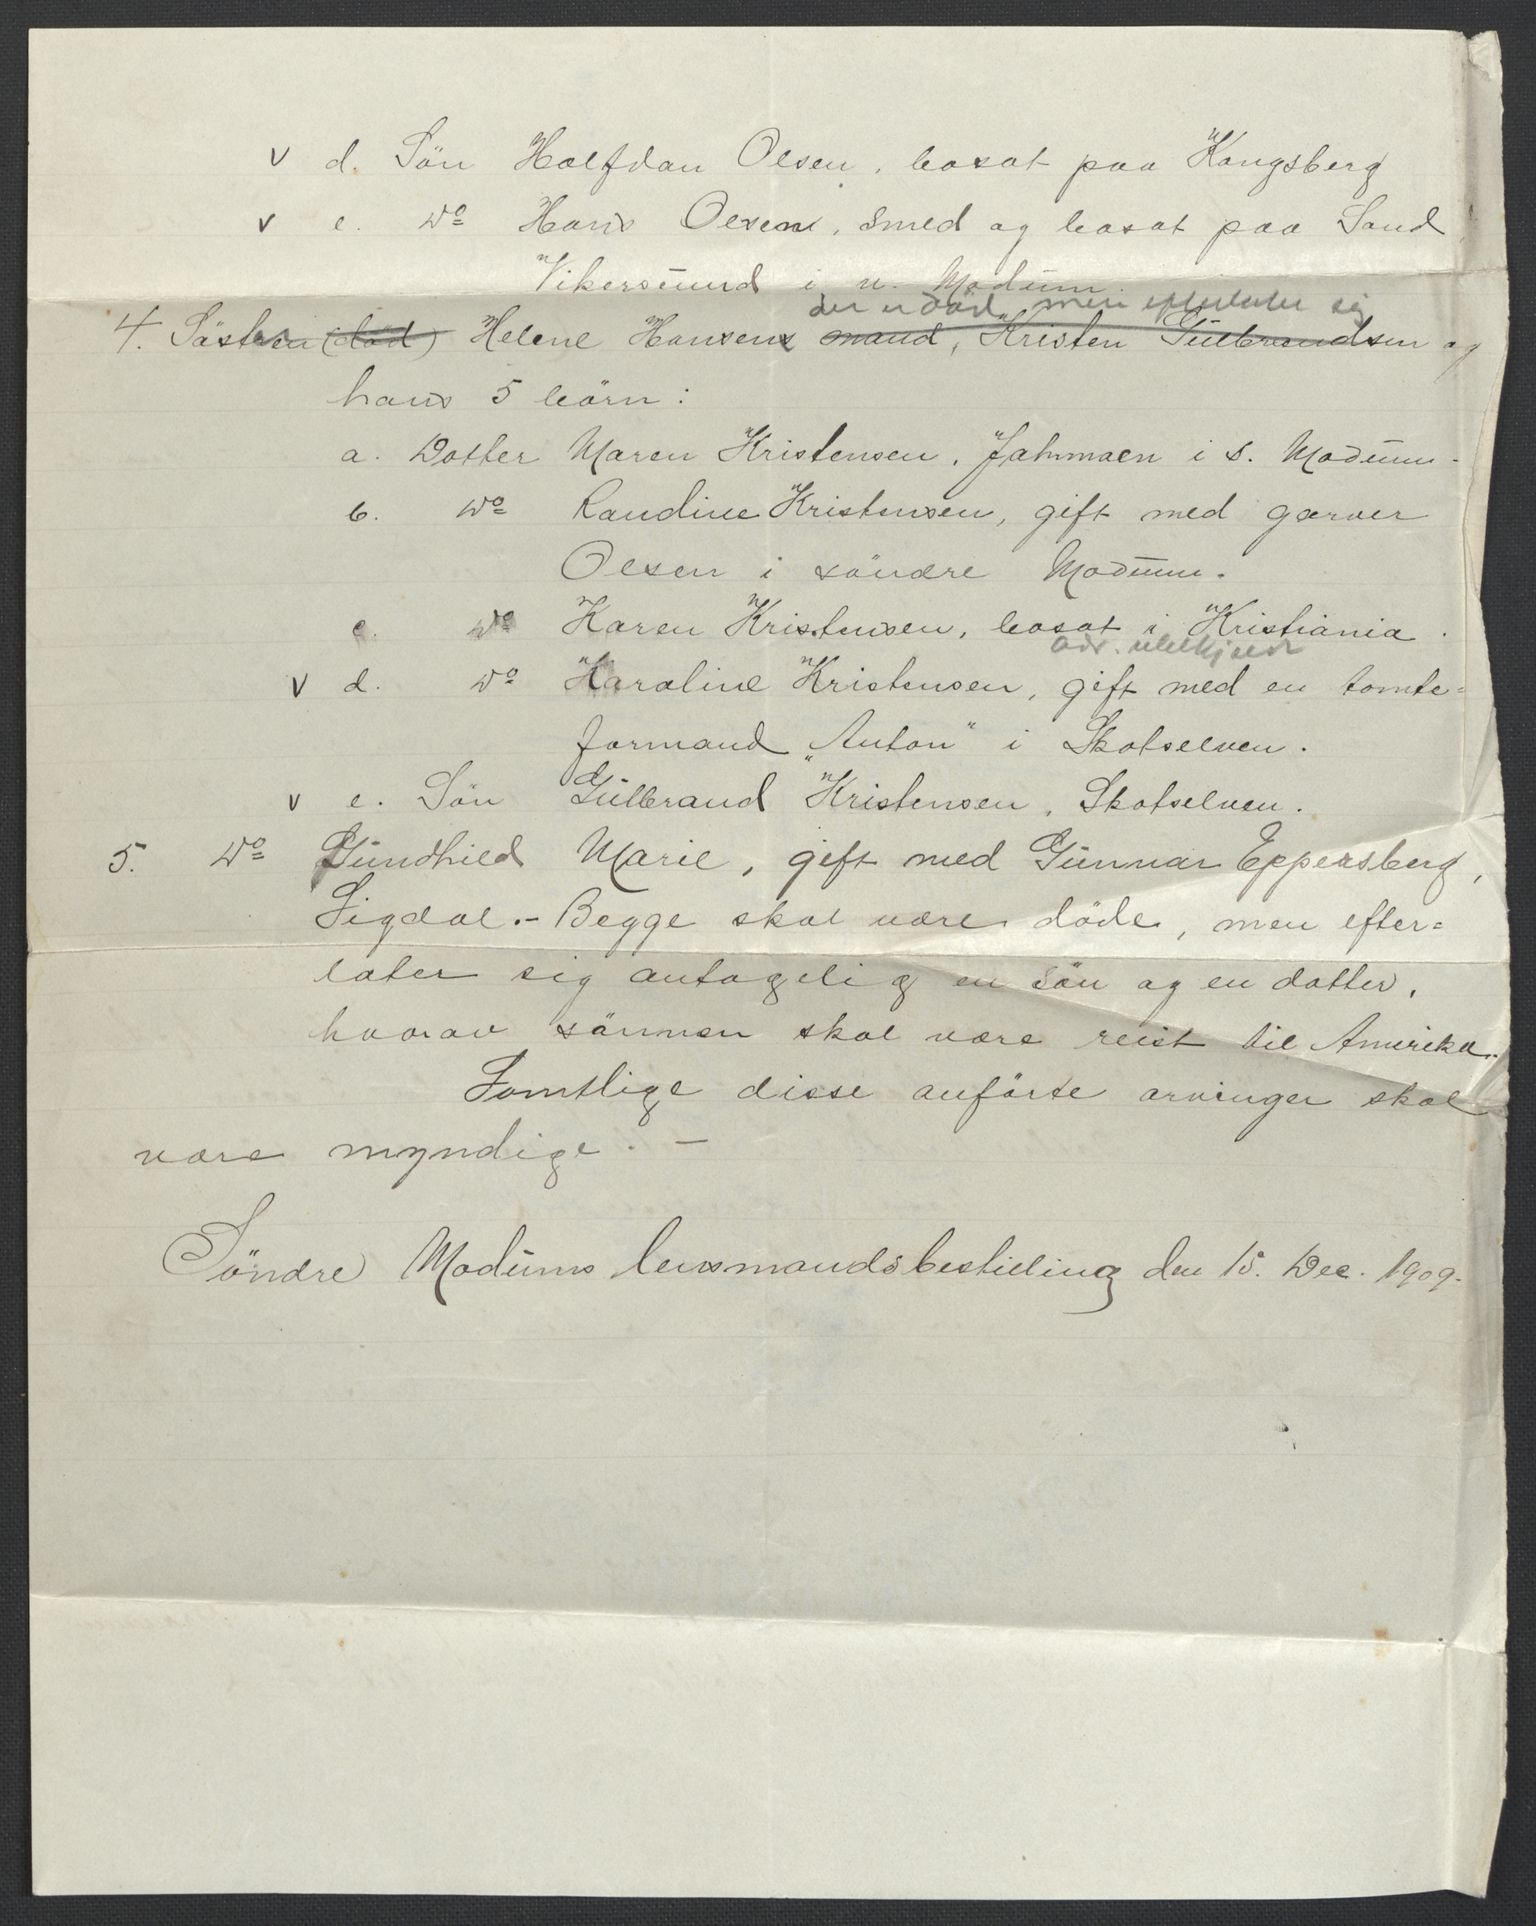 v d. Sön Halfdan Olsen, bosat paa Kongsberg
v e. Do Hans Olsen, smed og bosat paa Sand,
Vikersund i n. Modum.
der er död, men efterlater sig
4. Söstren (död) Helene Hansens mand, Kristen Gulbrandsen og
hans 5 börn:
a. Datter Maren Kristensen, Jahrmaen i s. Modum.
b. Do Randine Kristensen, gift med garver
Olsen i söndre Modum.
c. Do Karen Kristensen, bosat i Kristiania.
adr. ubekjent
v d. Do Karoline Kristensen, gift med en tomte=
formand „Anton" i Skotselven.
v e. Sön Gulbrand Kristensen, Skotselven.
5. Do Gundhild Marie, gift med Gunnar Eppersberg,
Sigdal. - Begge skal være döde, men efter=
later sig antagelig en sön og en datter,
hvorav sönnen skal være reist til Amerika.
Samtlige disse anförte arvinger skal
være myndige. -
Söndre Modums lensmandsbestilling den 15. Dec. 1909.